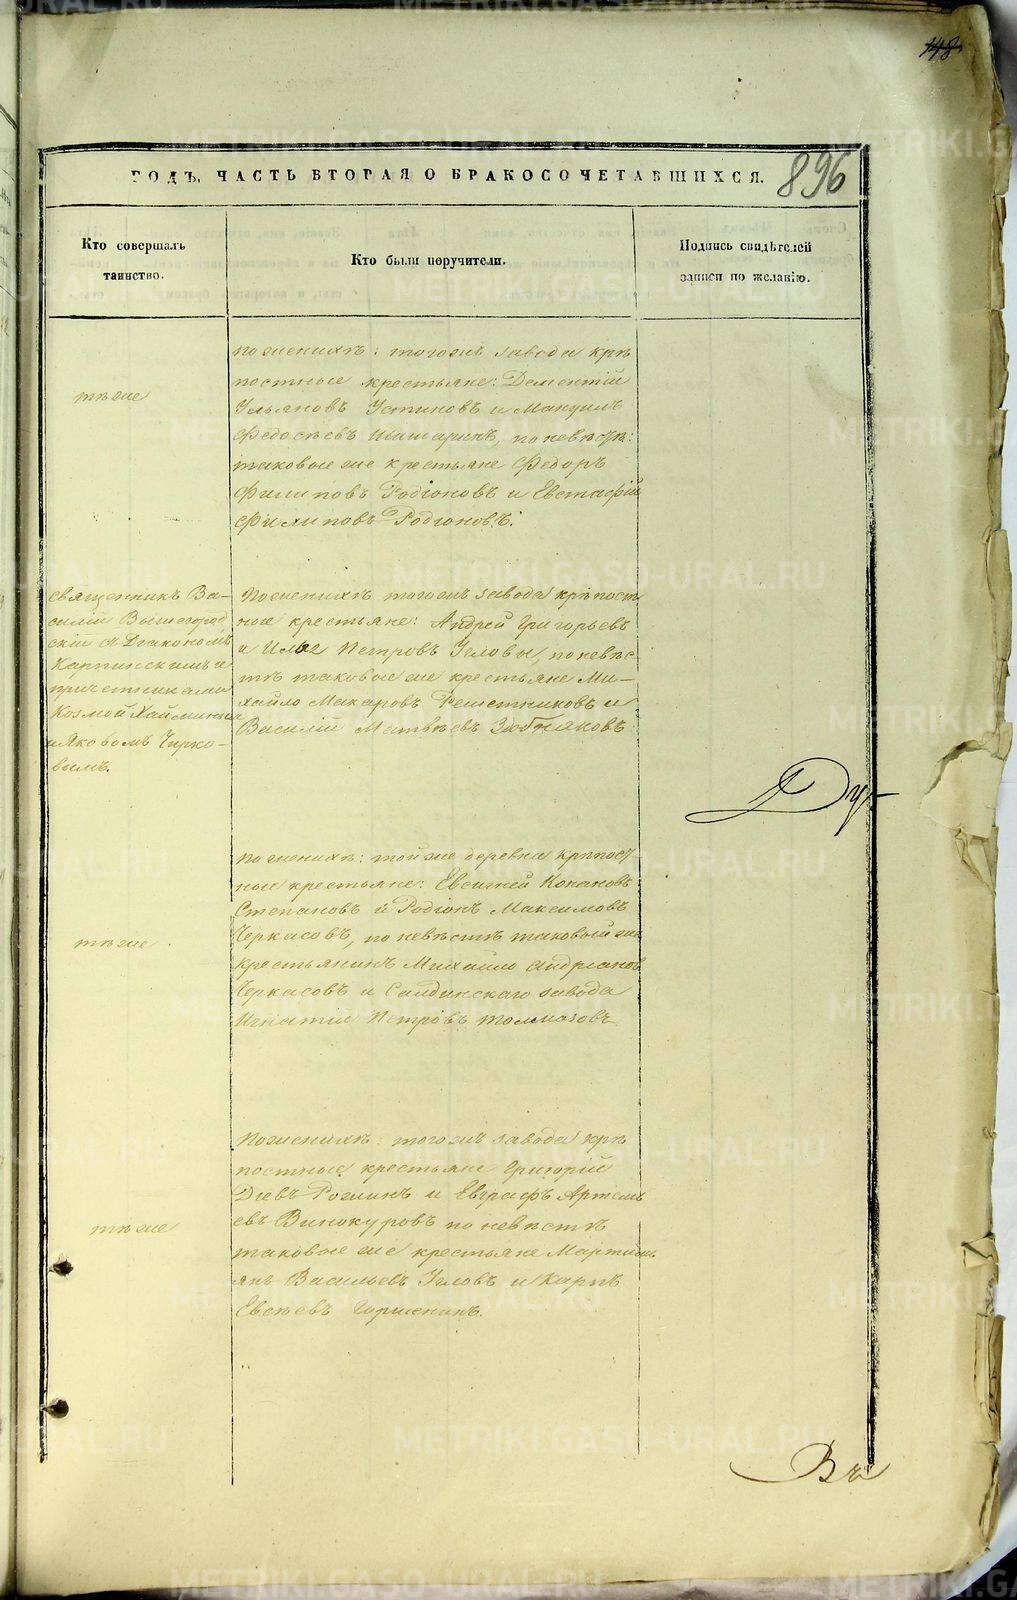 148
896
ГОДЪ, ЧАСТЬ ВТОРАЯ О БРАКОСОЧЕТАВШИХСЯ.
Кто совершалъ
таинство.
Кто были поручители.
Подпись свидѣтелей
записи по желанію.
тѣ же
по женихѣ: того жъ завода крѣ
постные крестьяне: Дементій
Ульяновъ Устиновъ и Мануилъ
Федосѣевъ Шишаринъ, по невѣстѣ:
таковые же крестьяне Федоръ
Филиповъ Родіоновъ и Евстафій
Филиповъ Родіоновъ.
Священникъ Ва-
силій Вышегород
скій съ Діакономъ
Карпинскимъ и
причетниками
Козмой Хайминымъ
и Яковомъ Чирко-
вымъ.
По женихѣ того жъ завода крѣпост
ные крестьяне: Андрей Григорьевъ
и Илья Петровъ Уеловы, по невѣс-
тѣ таковые же крестьяне Ми-
хайло Макаровъ Решетниковъ и
Василій Матвѣевъ Здобняковъ
Ду-
тѣ же
по женихѣ: той же деревни крѣпост-
ные крестьяне: Евсигней Конановъ
Степановъ и Родіонъ Максимовъ
Черкасовъ, по невѣстѣ таковый же
крестьянинъ Михайло Андріановъ
Черкасовъ и Салдинскаго завода
Игнатій Петровъ Толмазовъ
тѣ же
По женихѣ: того жъ завода крѣ
постные крестьяне Григорій
Діевъ Рожинъ и Евграфъ Артемь
евъ Винокуровъ по невѣстѣ
таковые же крестьяне Мартимь
янъ Васильевъ Уеловъ и Карпъ
Евсѣевъ Горшенинъ.
Въ